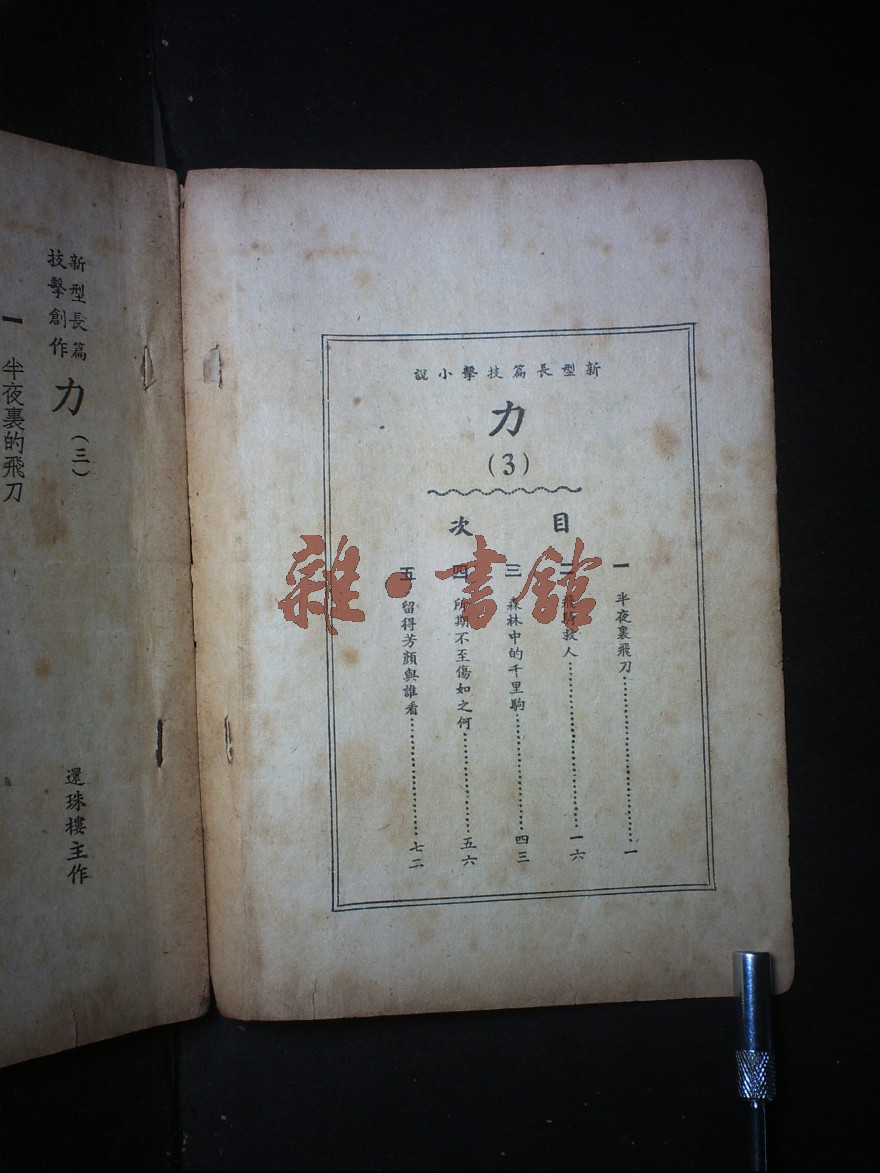 新型長篇技擊小說
力
(3)
目次
一 半夜裏飛刀……一
二 救人……一六
三 森林中的千里駒……四三
四 所期不至傷如之何……五六
五 留得芳顏與誰看……七二
新型長篇
技擊創作
力(三)
還珠樓主作
一 半夜裏的飛刀
雜·書館